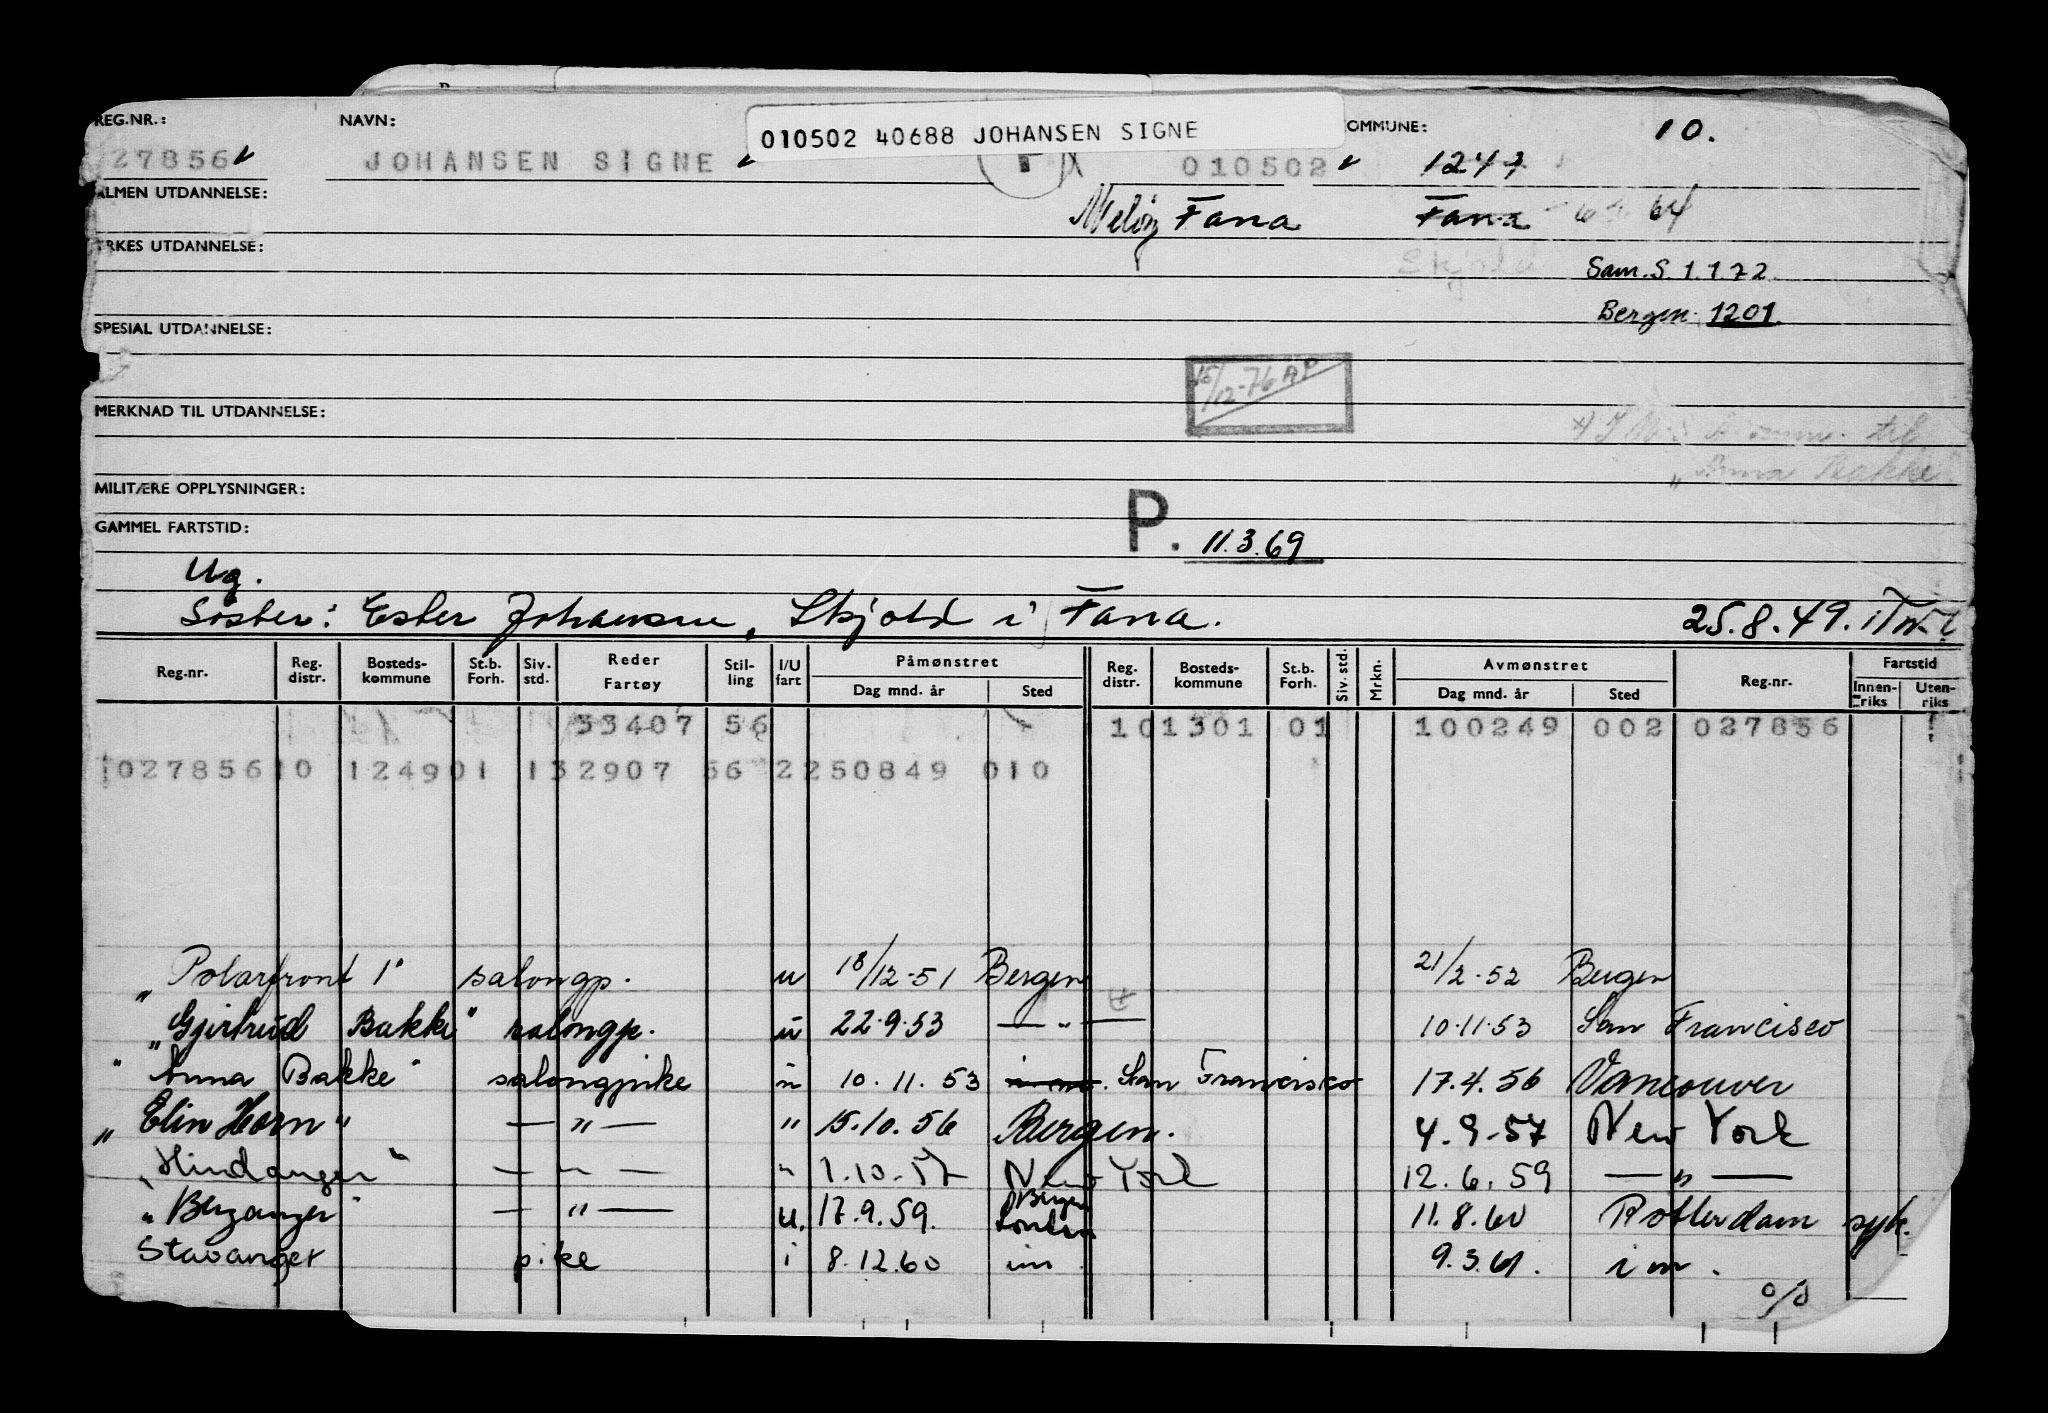 010502 40688 JOHANSEN SIGNE
REG.NR.: NAVN: OMMUNE: 10.
27856 JOHANSEN SIGNE 010502 1247
ALMEN UTDANNELSE: Meløy Fana Fana 64
YRKES UTDANNELSE: Skjold Sam.S. 1.1.72.
Bergen 1201
SPESIAL UTDANNELSE:
15/12-76 AP
MERKNAD TIL UTDANNELSE: til
"Anna Bakke"
MILITÆRE OPPLYSNINGER:
GAMMEL FARTSTID: P. 11.3.69
Ug.
Søster: Ester Johansen, Skjold i Fana. 25.8.49.
Reg.nr. Reg. distr. Bosteds- kommune St.b. Forh. Siv. std. Reder Fartøy Stil- ling I/U fart Påmønstret Dag mnd. år Sted Reg. distr. Bosteds- kommune St.b. Forh. Siv. std. Mrkn. Avmønstret Dag mnd. år Sted Reg.nr. Fartstid Innen- riks Uten- riks
33407 56 101301 01 100249 002 027856
027856 10 124901 132907 56 2250849 010
"Polarfront I" salongp. u 18/12-51 Bergen 21/2-52 Bergen
"Gjertrud Bakke" salongp. u 22.9.53 — " — 10.11.53 San Francisco
"Anna Bakke" salongpike " 10.11.53 San Francisco 17.4.56 Vancouver
"Elin Horn" — " — " 15.10.56 Bergen. 4.9.57 New York
"Hindanger" — " — " 1.10.57 New York 12.6.59 — " —
"Berganger" — " — u. 17.9.59. Bergen London 11.8.60 Rotterdam syk.
Stavanger pike i 8.12.60 im 9.3.61. im.
o/s